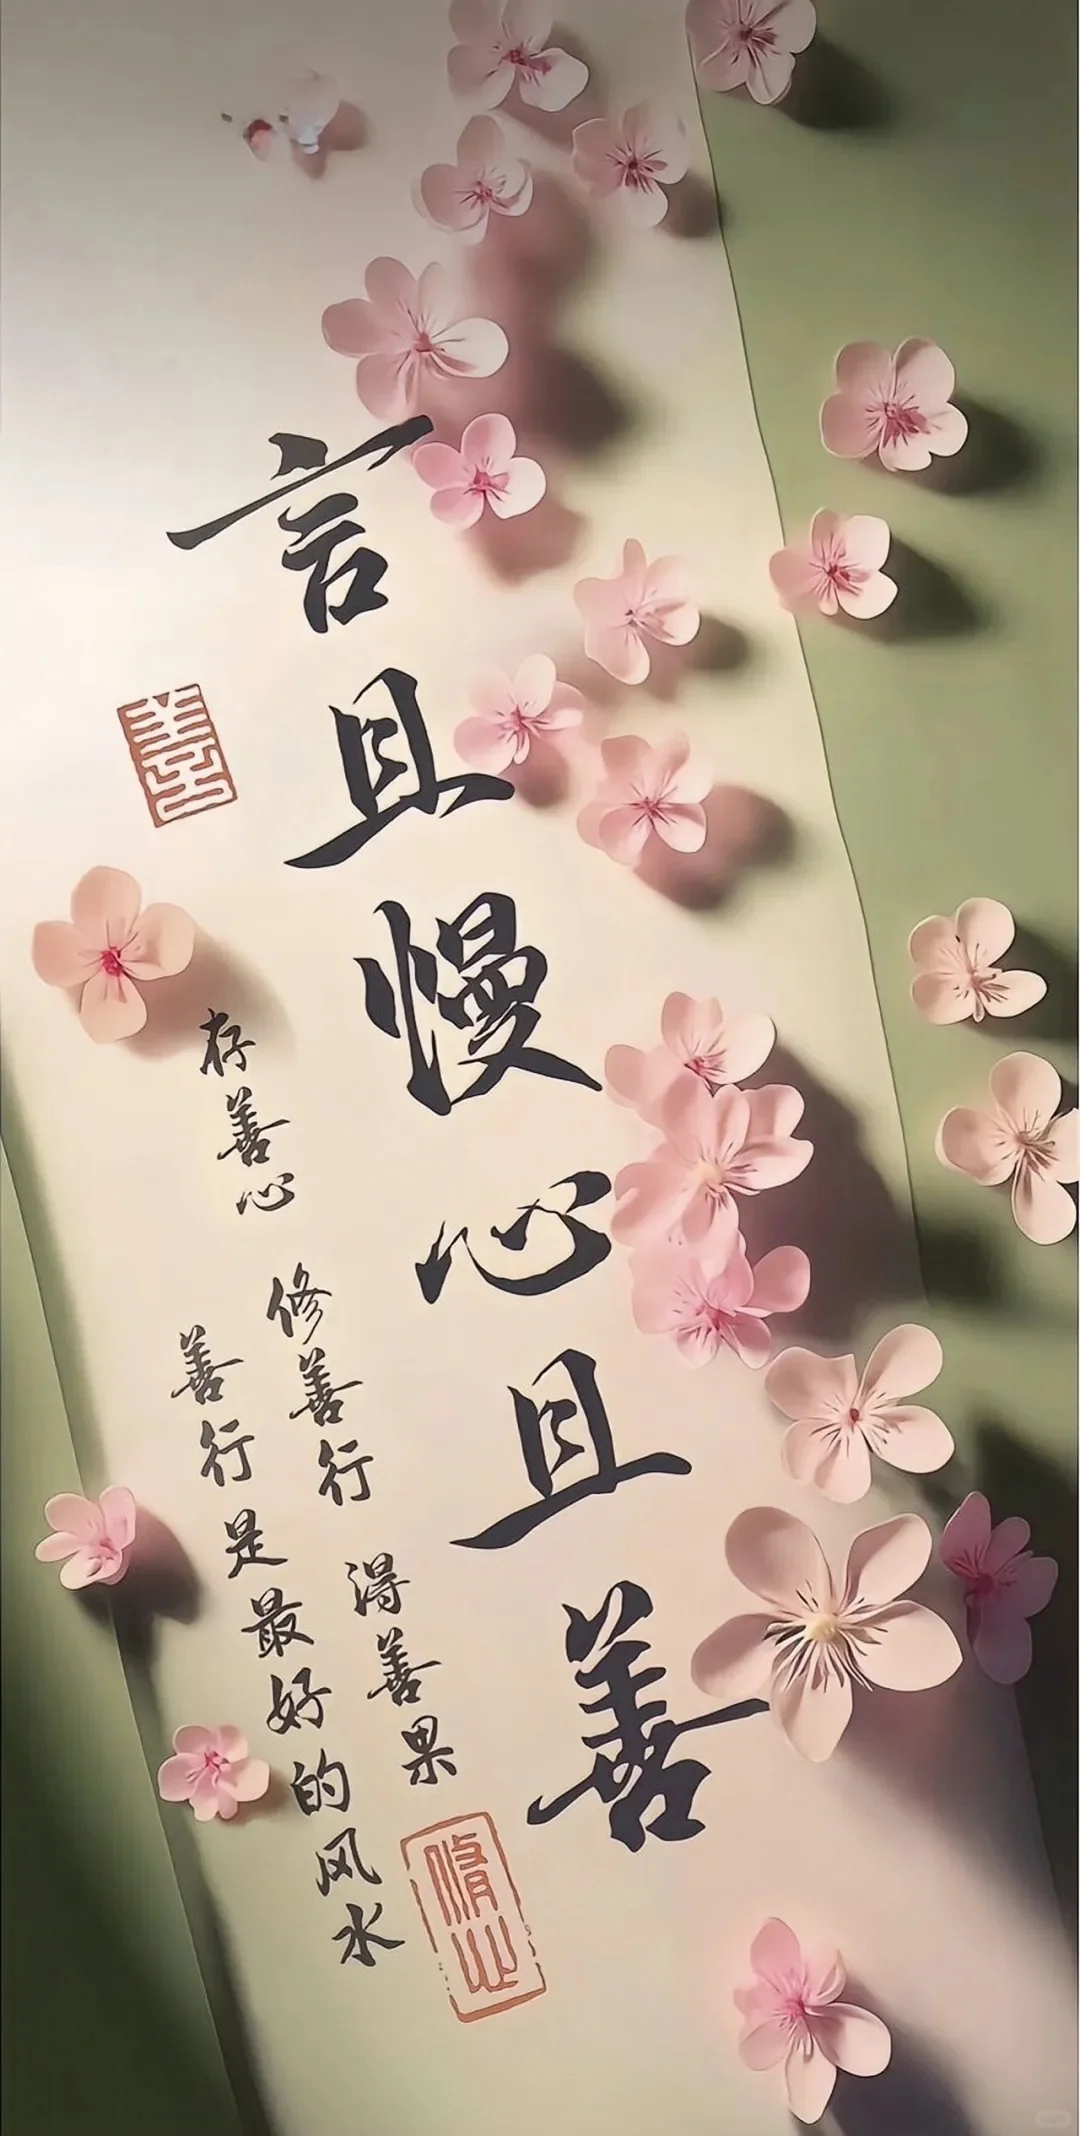 言且慢心且善
存善心 修善行 得善果
善行是最好的风水
善
修心